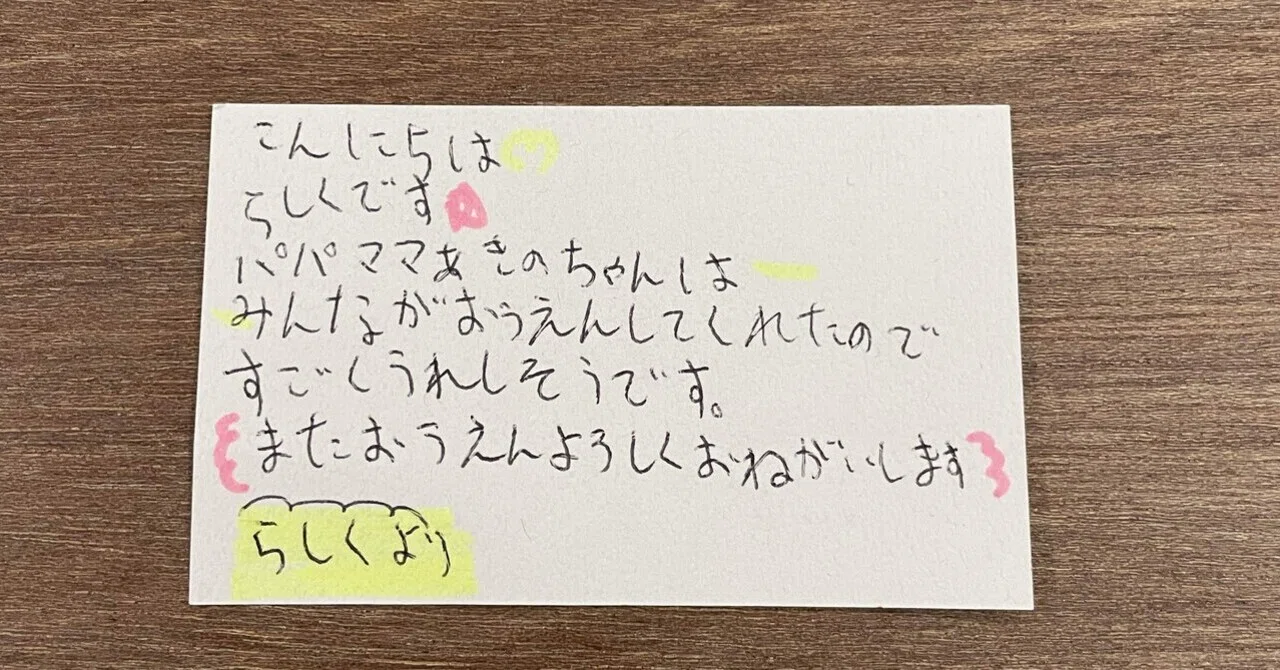 こんにちは
らしくです
パパママあきのちゃんは
みんながおうえんしてくれたので
すごくうれしそうです。
またおうえんよろしくおねがいします
らしくより